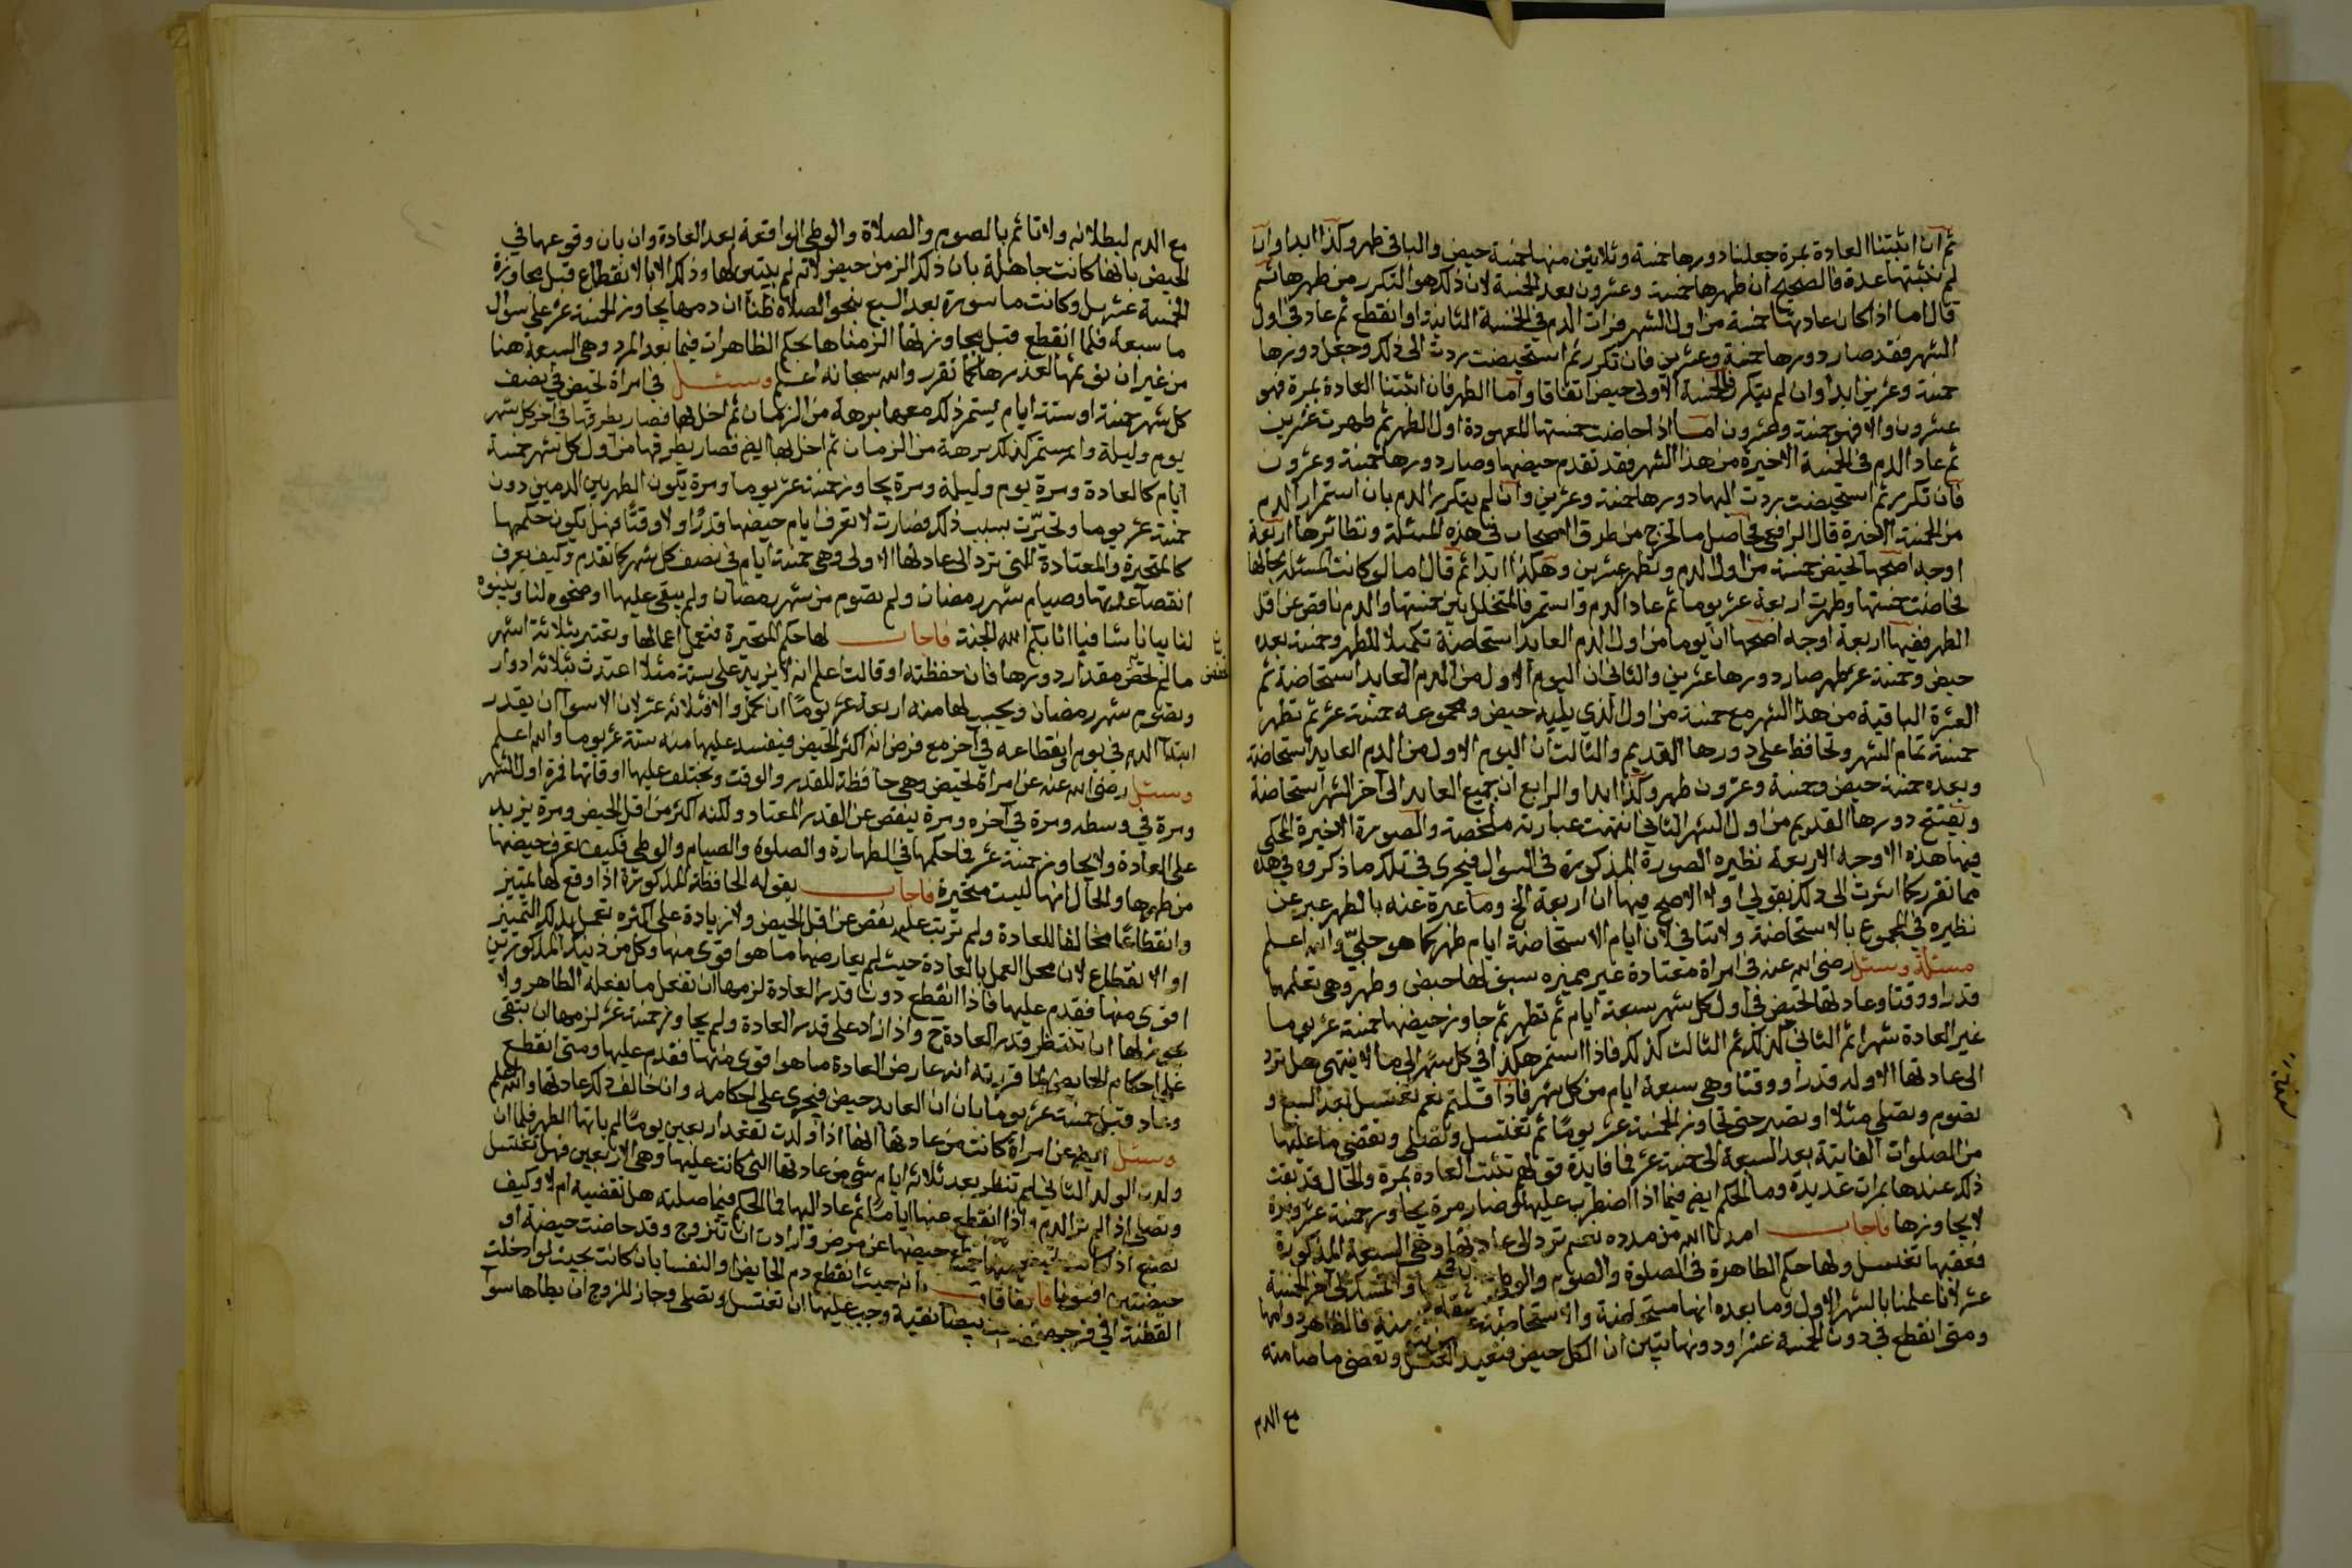 ثم ان اثبتنا العادة بمرة جعلنا دورها خمسة وثلاثين منها خمسة حيض والباقي طهر وكذا ابدا وان
لم نثبتها عدة فالصحيح ان طهرها خمسة وعشرون بعد الخمسة لان ذلك هو المتكرر من طهرها ثم
قال اما اذا كان عادتها خمسة من اول الشهر فرات الدم في الخمسة الثانية او انقطع ثم عاد في اول
الشهر فقد صار دورها خمسة وعشرين فان تكرر ثم استحيضت ردت الى ذلك وجعل دورها
خمسة وعشرين ابدا وان لم يتكرر فالخمسة الاولى حيض اتفاقا واما الطهر فان اثبتنا العادة بمرة فهو
عشرون والا فهو خمسة وعشرون اما اذا حاضت خمستها المعهودة اول الطهر ثم طهرت عشرين
ثم عاد الدم في الخمسة الاخيرة من هذا الشهر فقد تقدم حيضها وصار دورها خمسة وعشرون
فان تكرر ثم استحيضت ردت اليها دورها خمسة وعشرين وان لم يتكرر الدم بان استمرار الدم
من الخمسة الاخيرة قال الرافعي فحاصل ما يخرج من طرق الاصحاب في هذه المسئلة ونظائرها اربعة
اوجه اصحها تحيض خمسة من اول الدم وتطهر عشرين وهكذا ابدا ثم قال اما لو كانت المسئلة بحالها
فحاضت خمستها وطهرت اربعة عشر يوما ثم عاد الدم واستمر فالمتخلل بين خمستها والدم ناقص عن اقل
الطهر ففيها اربعة اوجه اصحها ان يوما من اول الدم العايد استحاضة تكميلا للطهر وخمسة بعده
حيض وخمسة عشر طهر صار دورها عشرين والثاني ان اليوم الاول من الدم العايد استحاضة ثم
العشرة الباقية من هذا الشهر مع خمسة من اول الذي يليه حيض ومجموعه خمسة عشر ثم تطهر
خمسة تمام الشهر وتحافظ على دورها القديم والثالث ان اليوم الاول من الدم العايد استحاضة
وبعده خمسة حيض وخمسة وعشرون طهر وكذا ابدا والرابع ان جميع العايد الى آخر الشهر استحاضة
وتفتتح دورها القديم من اول الشهر الثاني انتهت عبارته ملخصة والصورة الاخيرة المحكي
فيها هذه الاوجه الاربعة نظيره الصورة المذكورة في السوال فيجرى في تلك ما ذكروه في هذه
مما تقرر كما اشرت الى ذلك بقولي اولا الاصح فيها ان اربعة الخ وما عبرة عنه بالطهر عبر عن
نظيره في المجموع بالاستحاضة ولا تنافي لان ايام الاستحاضة ايام طهر كما هو جلي والله اعلم
مسئلة وسئل رضى الله عنه في امراة معتادة غير مميزه سبق لها حيض وطهر وهي تعلمها
قدرا ووقتا وعادتها تحيض في اول كل شهر سبعة ايام ثم تطهر ثم جاوز حيضها خمسة عشر يوما
غير العادة شهرا ثم الثاني كذلك ثم الثالث كذلك فاذا استمر هكذا في كل شهر الى ما لا ينتهي هل ترد
الى عادتها الاوله قدرا ووقتا وهي سبعة ايام من كل شهر فاذا قلتم نعم تغتسل بعد السبع و
تصوم وتصلي مثلا او تصبر حتى تجاوز الخمسة عشر يوما ثم تغتسل وتصلي وتقضي ما عليها
من الصلوات الفايتة بعد السبعة الى خمسة عشر فما فايدة قولهم تثبت العادة بمرة والحال قد ثبت
ذلك عندها بمرات عديدة وما الحكم ايض فيما اذا اضطرب عليها فصار مرة يجاوز خمسة عشر ومرة
لا يجاوزها فاجاب امدنا الله من مدده نعم ترد الى عادتها وهي السبعة المذكورة
فعقبها تغتسل ولها حكم الطاهرة في الصلوة والصوم والوطئ
عشر لانا علمنا بالشهر الاول وما بعده انها مستحاضة والاستحاضة علة مزمنة فالظاهر دوامها
ومتى انقطع في دون الخمسة عشر او دونها تبين ان الكل حيض فتعيد الغسل وتقضي ما صامته
مع الدم
مع الدم لبطلانه ولا تاثم بالصوم والصلاة والوطئ الواقعة بعد العادة وان بان وقوعها في
الحيض بانها كانت جاهلة بان ذلك الزمن حيض لانه لم يتبين لها وذلك الا بالانقطاع قبل مجاوزة
الخمسة عشر بل وكانت مامورة بعد السبع بنحو الصلاة ظنا ان دمها يجاوز الخمسة عشر على منوال
ما سبعه فلما انقطع قبل مجاوزتها الزمناها بحكم الظاهرات فيما بعد المرد وهي السبعة هنا
من غير ان نوثمها لعذرها كما تقرر والله سبحانه اعلم وسئل في امراة تحيض في نصف
كل شهر خمسة او ستة ايام يستمر ذلك معها برهة من الزمان ثم اختل بها فصار يطرقها في آخر كل شهر
يوم وليلة واستمر كذلك برهة من الزمان ثم اختل بها ايض فصار يطرقها من اول كل شهر خمسة
ايام كالعادة ومرة يوم وليلة ومرة يجاوز خمسة عشر يوما ومرة يكون الطهر بين الدمين دون
خمسة عشر يوما وتحيرت بسبب ذلك وصارت لا تعرف ايام حيضها قدرا ولا وقتا فهل يكون حكمها
كالمتحيرة والمعتادة التي ترد الى عادتها الاولى وهي خمسة ايام في نصف كل شهر كما تقدم وكيف يعرف
انقضآ عدتها وصيام شهر رمضان ولم تصوم من شهر رمضان ولم يبقى عليها اوضحوه لنا وبينوه
لنا بيانا شافيا اثابكم الله الجنة فاجاب لها حكم المتحيرة فتعمل اعمالها وتعتد بثلاثة اشهر
ما لم تحفض مقدار دورها فان حفظته او قالت اعلم انه لا يزيد على ستة مثلا اعتدت بثلاثة ادوار
وتصوم شهر رمضان ويحسب لها منه اربعة عشر يوما ان كمل والا فثلاثة عشر لان الاسوا ان يقدر
ابتدآ الدم في يوم وانقطاعه في آخر مع فرض انه اكثر الحيض فيفسد عليها منه ستة عشر يوما والله اعلم
وسئل رضى الله عنه عن امراة تحيض وهي حافظة للقدر والوقت ويختلف عليها اوقاتها فمرة اول الشهر
ومرة في وسطه ومرة في آخره ومرة ينقص عن القدر المعتاد ولكنه اكثر من اقل الحيض ومرة يزيد
على العادة ولا يجاوز خمسة عشر فما حكمها في الطهارة والصلوة والصيام والوطئ فكيف تعرف حيضها
من طهرها والحال انها ليست متحيرة فاجاب بقوله الحافظة المذكورة اذا وقع لها تمييز
وانقطاعا مخالفا للعادة ولم يترتب عليه نقص عن اقل الحيض ولا زيادة على اكثره تعمل بذلك التمييز
او الانقطاع لان محل العمل بالعادة حيث لم يعارضها ما هو اقوى منها وكل من ذينك المذكورتين
اقوى منها فقدم عليها فاذا انقطع دون قدر العادة لزمها ان تفعل ما تفعله الطاهر ولا
يجوز لها ان تنتظر قدر العادة ح واذا زاد على قدر العادة ولم يجاوز خمسة عشر لزمها ان تبقى
على احكام الحايض لما قررته انه عارض العادة ما هو اقوى منها فقدم عليها ومتى انقطع
وعاد قبل خمسة عشر يوما بان ان العايد حيض فيجرى على احكامه وان خالف ذلك عادتها والله اعلم
وسئل ايض عن امراة كانت من عادتها انها اذا ولدت تقعد اربعين يوما لم ياتها الطهر فلما ان
ولدت الولد الثاني لم تنظر بعد ثلاثة ايام شي من عادتها التي كانت عليها وهي الاربعين فهل تغتسل
وتصلي اذا لم تر الدم واذا انقطع عنها اياما ثم عاد اليها فما الحكم فيما صلته هل تقضيه ام لا وكيف
تصنع اذا حيضها عن مرض وارادت ان تتزوج وقد حاضت حيضة او
حيضتين افتونا انه حيث انقطع دم الحايض او النفسا بان كانت بحيث لو ادخلت
القطنة في فرجها بيضا نقية وجب عليها ان تغتسل وتصلي وجاز للزوج ان يطاها سوآ